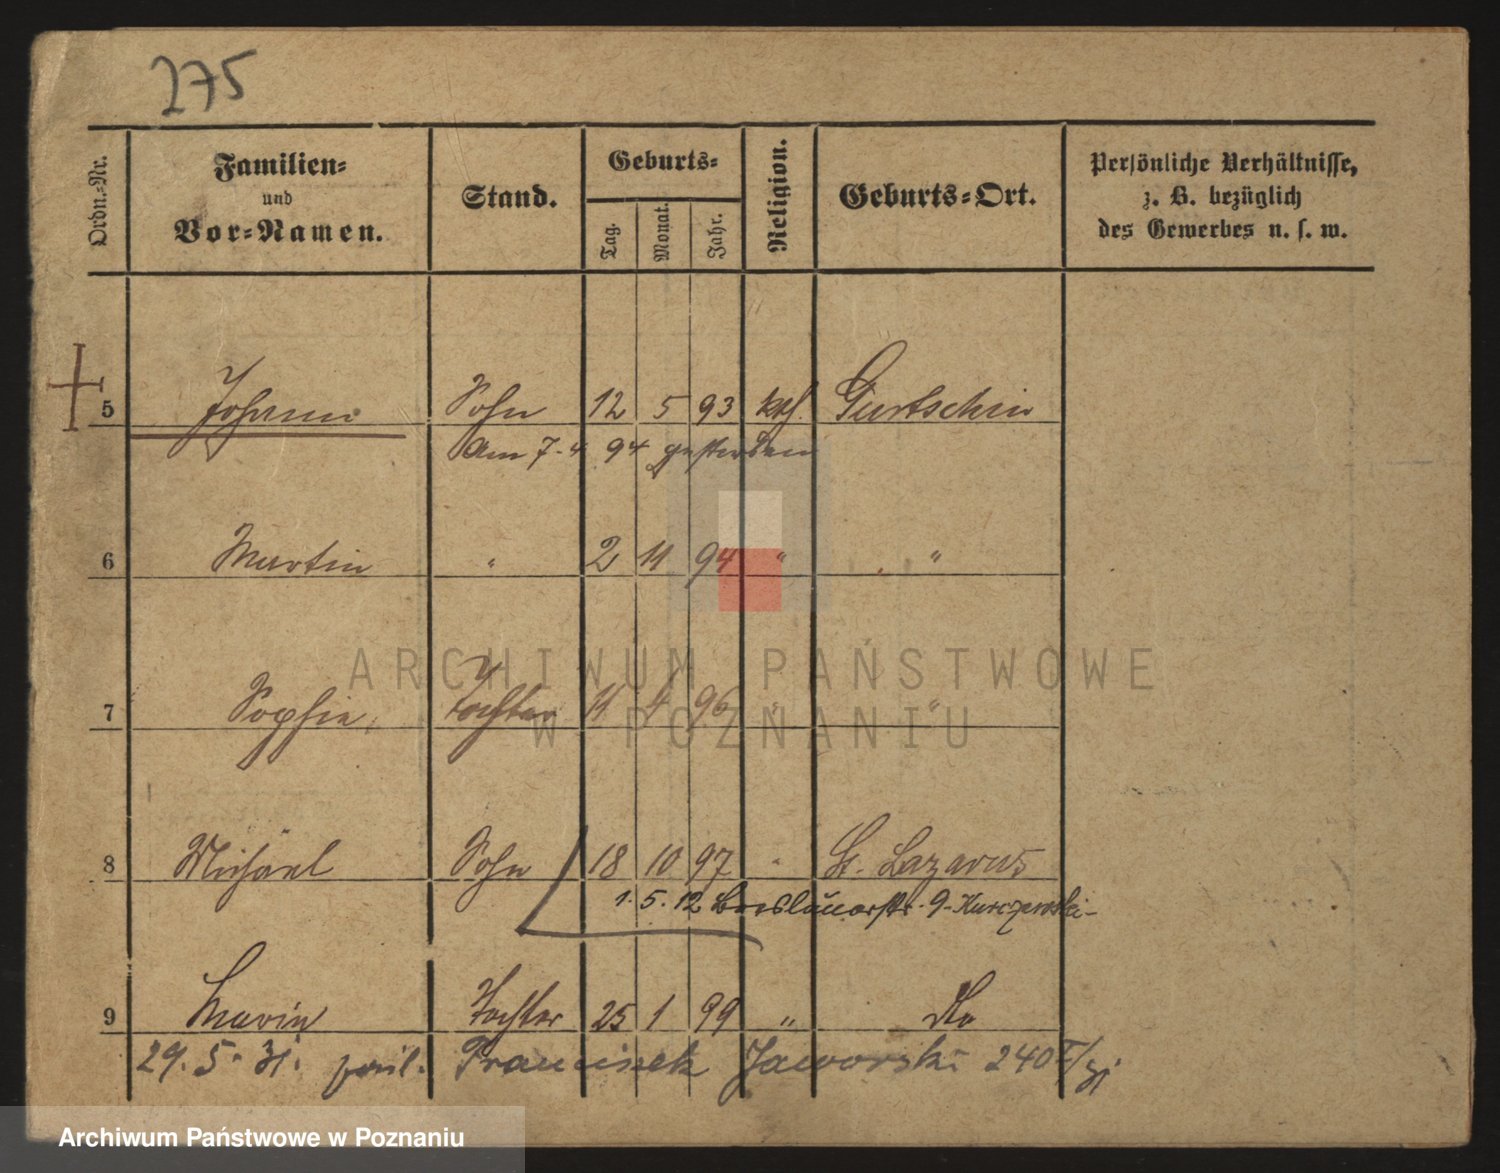 275
Ordn.-Nr.
Familien- und Vor-Namen.
Stand.
Geburts-
Tag.
Monat.
Jahr.
Religion.
Geburts-Ort.
Persönliche Verhältnisse,
z. B. bezüglich
des Gewerbes u. s. w.
5 Johann Sohn 12 5 93 kth. Gurtschin
Am 7. 4 94 gestorben
6 Martin " 2 11 94 " "
7 Sophie Tochter 11 4 96 " "
8 Michael Sohn 18 10 97 " St. Lazarus
1. 5. 12 Breslauerstr. 9
9 Maria Tochter 25 1 99 " do
29. 5. 31. Franciszek Jaworski 240
ARCHIWUM PAŃSTWOWE
W POZNANIU
Archiwum Państwowe w Poznaniu